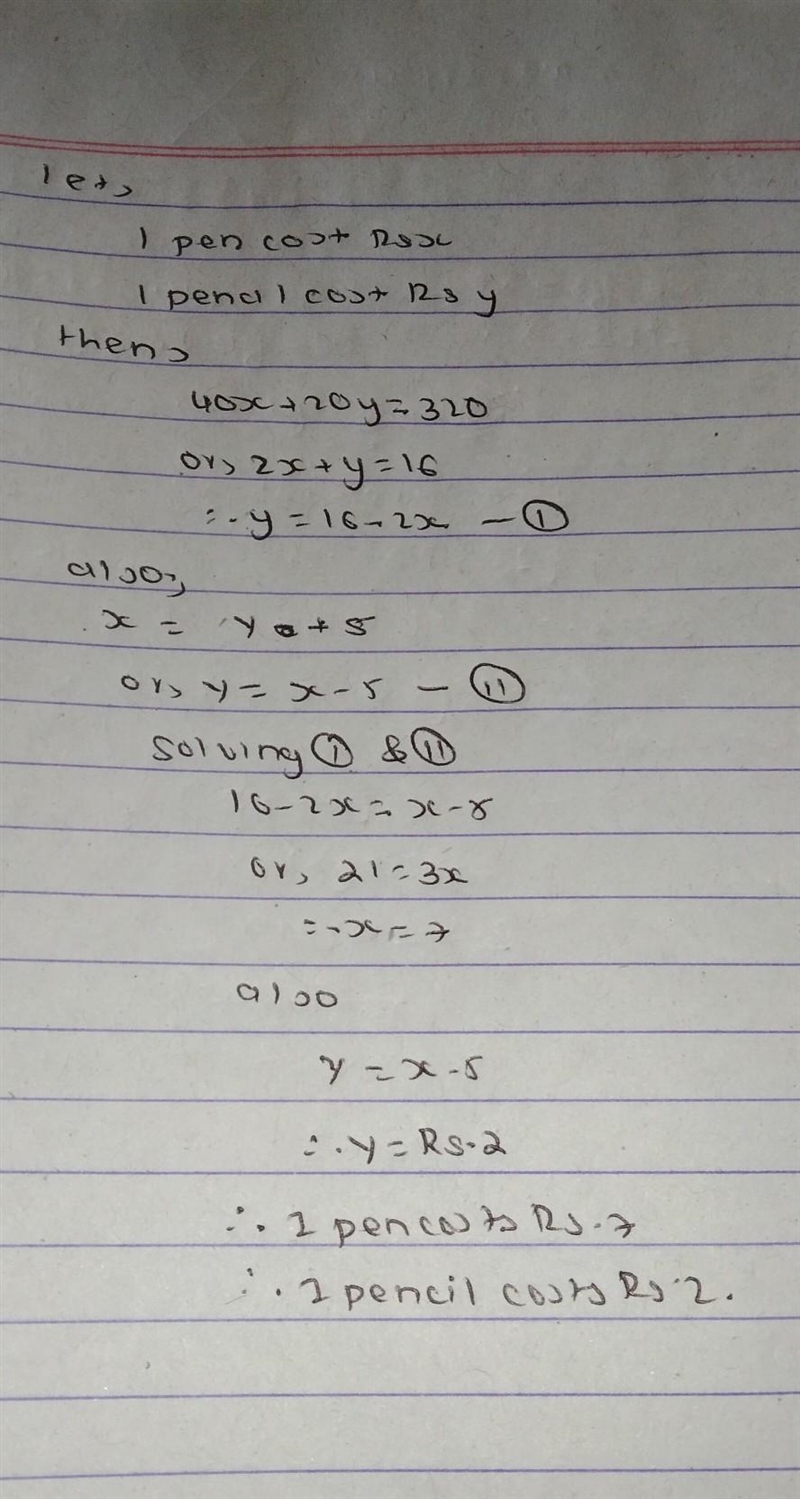 let,
1 pen cost Rs x
1 pencil cost Rs y
then,
40x+20y=320
or, 2x+y=16
∴ y=16-2x — ①
also,
x = y + 5
or, y = x-5 — ⑪
Solving ① & ⑪
16-2x = x-5
or, 21=3x
∴ x=7
also
y = x-5
∴ y=Rs.2
∴ 1 pen costs Rs.7
∴ 1 pencil costs Rs.2.